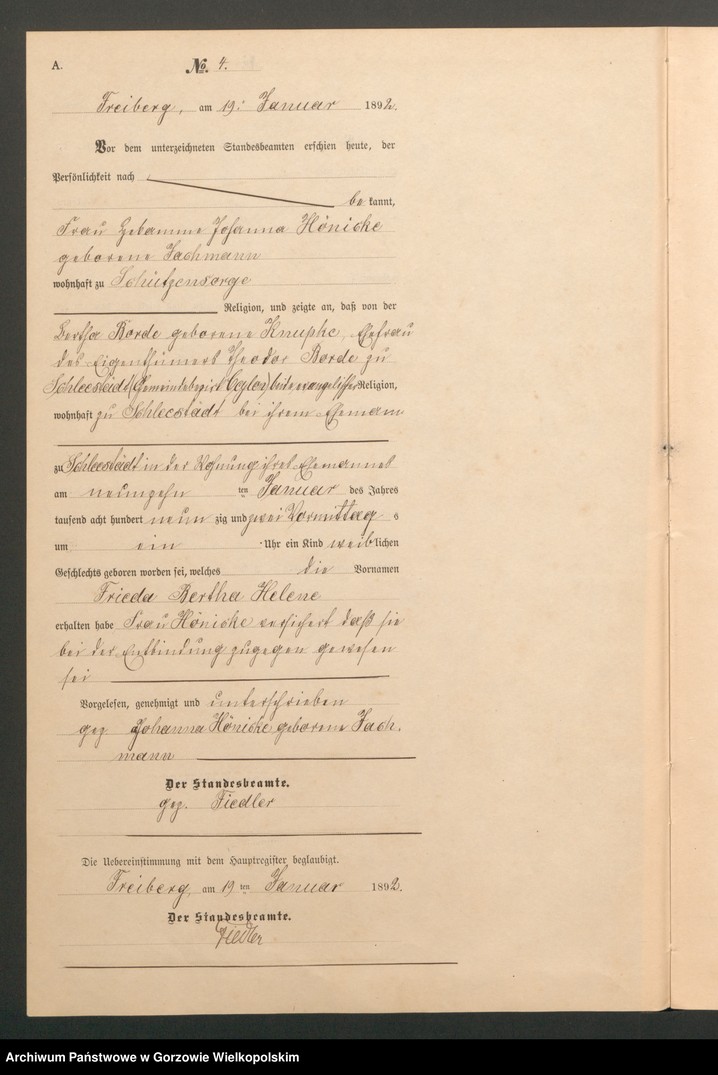 A. No. 4.
Freiberg, am 19. Januar 1892.
Vor dem unterzeichneten Standesbeamten erschien heute, der
Persönlichkeit nach
bekannt,
Frau Hebamme Johanna Hönicke
geborene Jachmann
wohnhaft zu Schützensorge
Religion, und zeigte an, daß von der
Bertha Borde geborene Knupke, Ehefrau
des Eigenthümers Theodor Borde zu
Schleestädt (Gemeindebezirk) beide evangelischer Religion,
wohnhaft zu Schleestädt bei ihrem Ehemann
zu Schleestädt in der Wohnung ihres Ehemannes
am neunzehn ten Januar des Jahres
tausend acht hundert neun zig und zwei Vormittag s
um ein Uhr ein Kind weiblichen
Geschlechts geboren worden sei, welches die Vornamen
Frieda Bertha Helene
erhalten habe Frau Hönicke versichert daß sie
bei der Entbindung zugegen gewesen
sei
Vorgelesen, genehmigt und unterschrieben
gez Johanna Hönicke geborene Jach-
mann
Der Standesbeamte.
gez. Fiedler
Die Uebereinstimmung mit dem Hauptregister beglaubigt.
Freiberg, am 19 ten Januar 1892.
Der Standesbeamte.
Fiedler
Archiwum Państwowe w Gorzowie Wielkopolskim